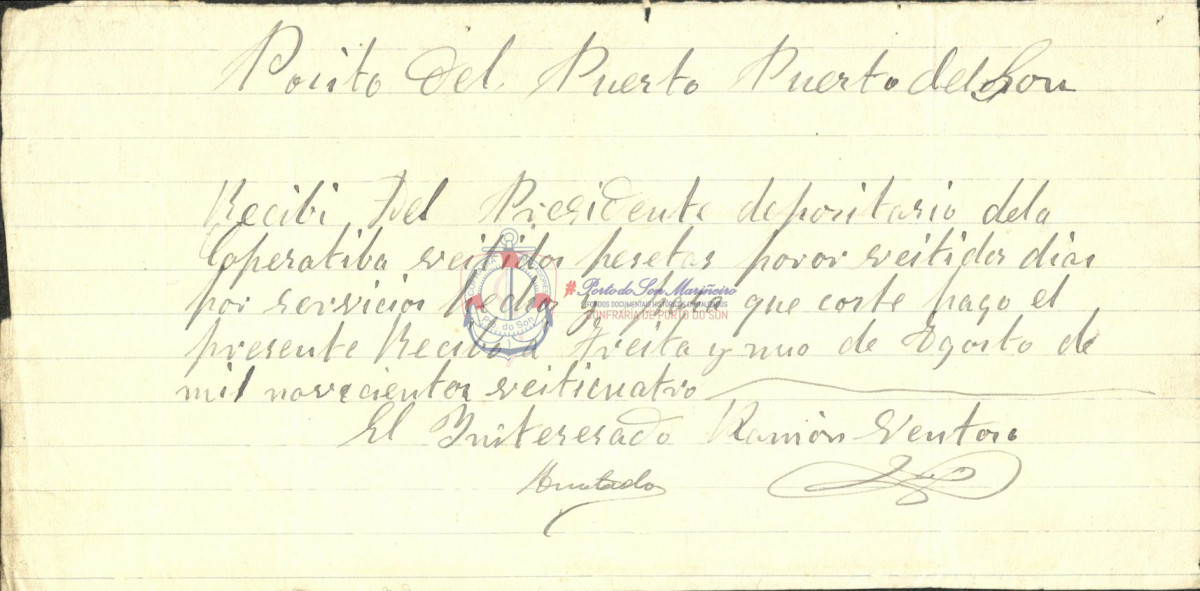 Posito Del Puerto Puerto del Son
Recibi Del Presidente depositario dela
Coperatiba veitidos pesetas poror veitidos dias
por servicios hechos que coste pago el
presente Recibo a Treita y nuo de Agosto de
mil novecientos veiticuatro
El Yniteresado Ramón Ventoso
Anotado
CONFRARÍA
Pto. do Son
#Porto do Son Mariñeiro
FONDOS DOCUMENTAIS HISTÓRICOS DIXITALIZADOS
CONFRARÍA DE PORTO DO SON